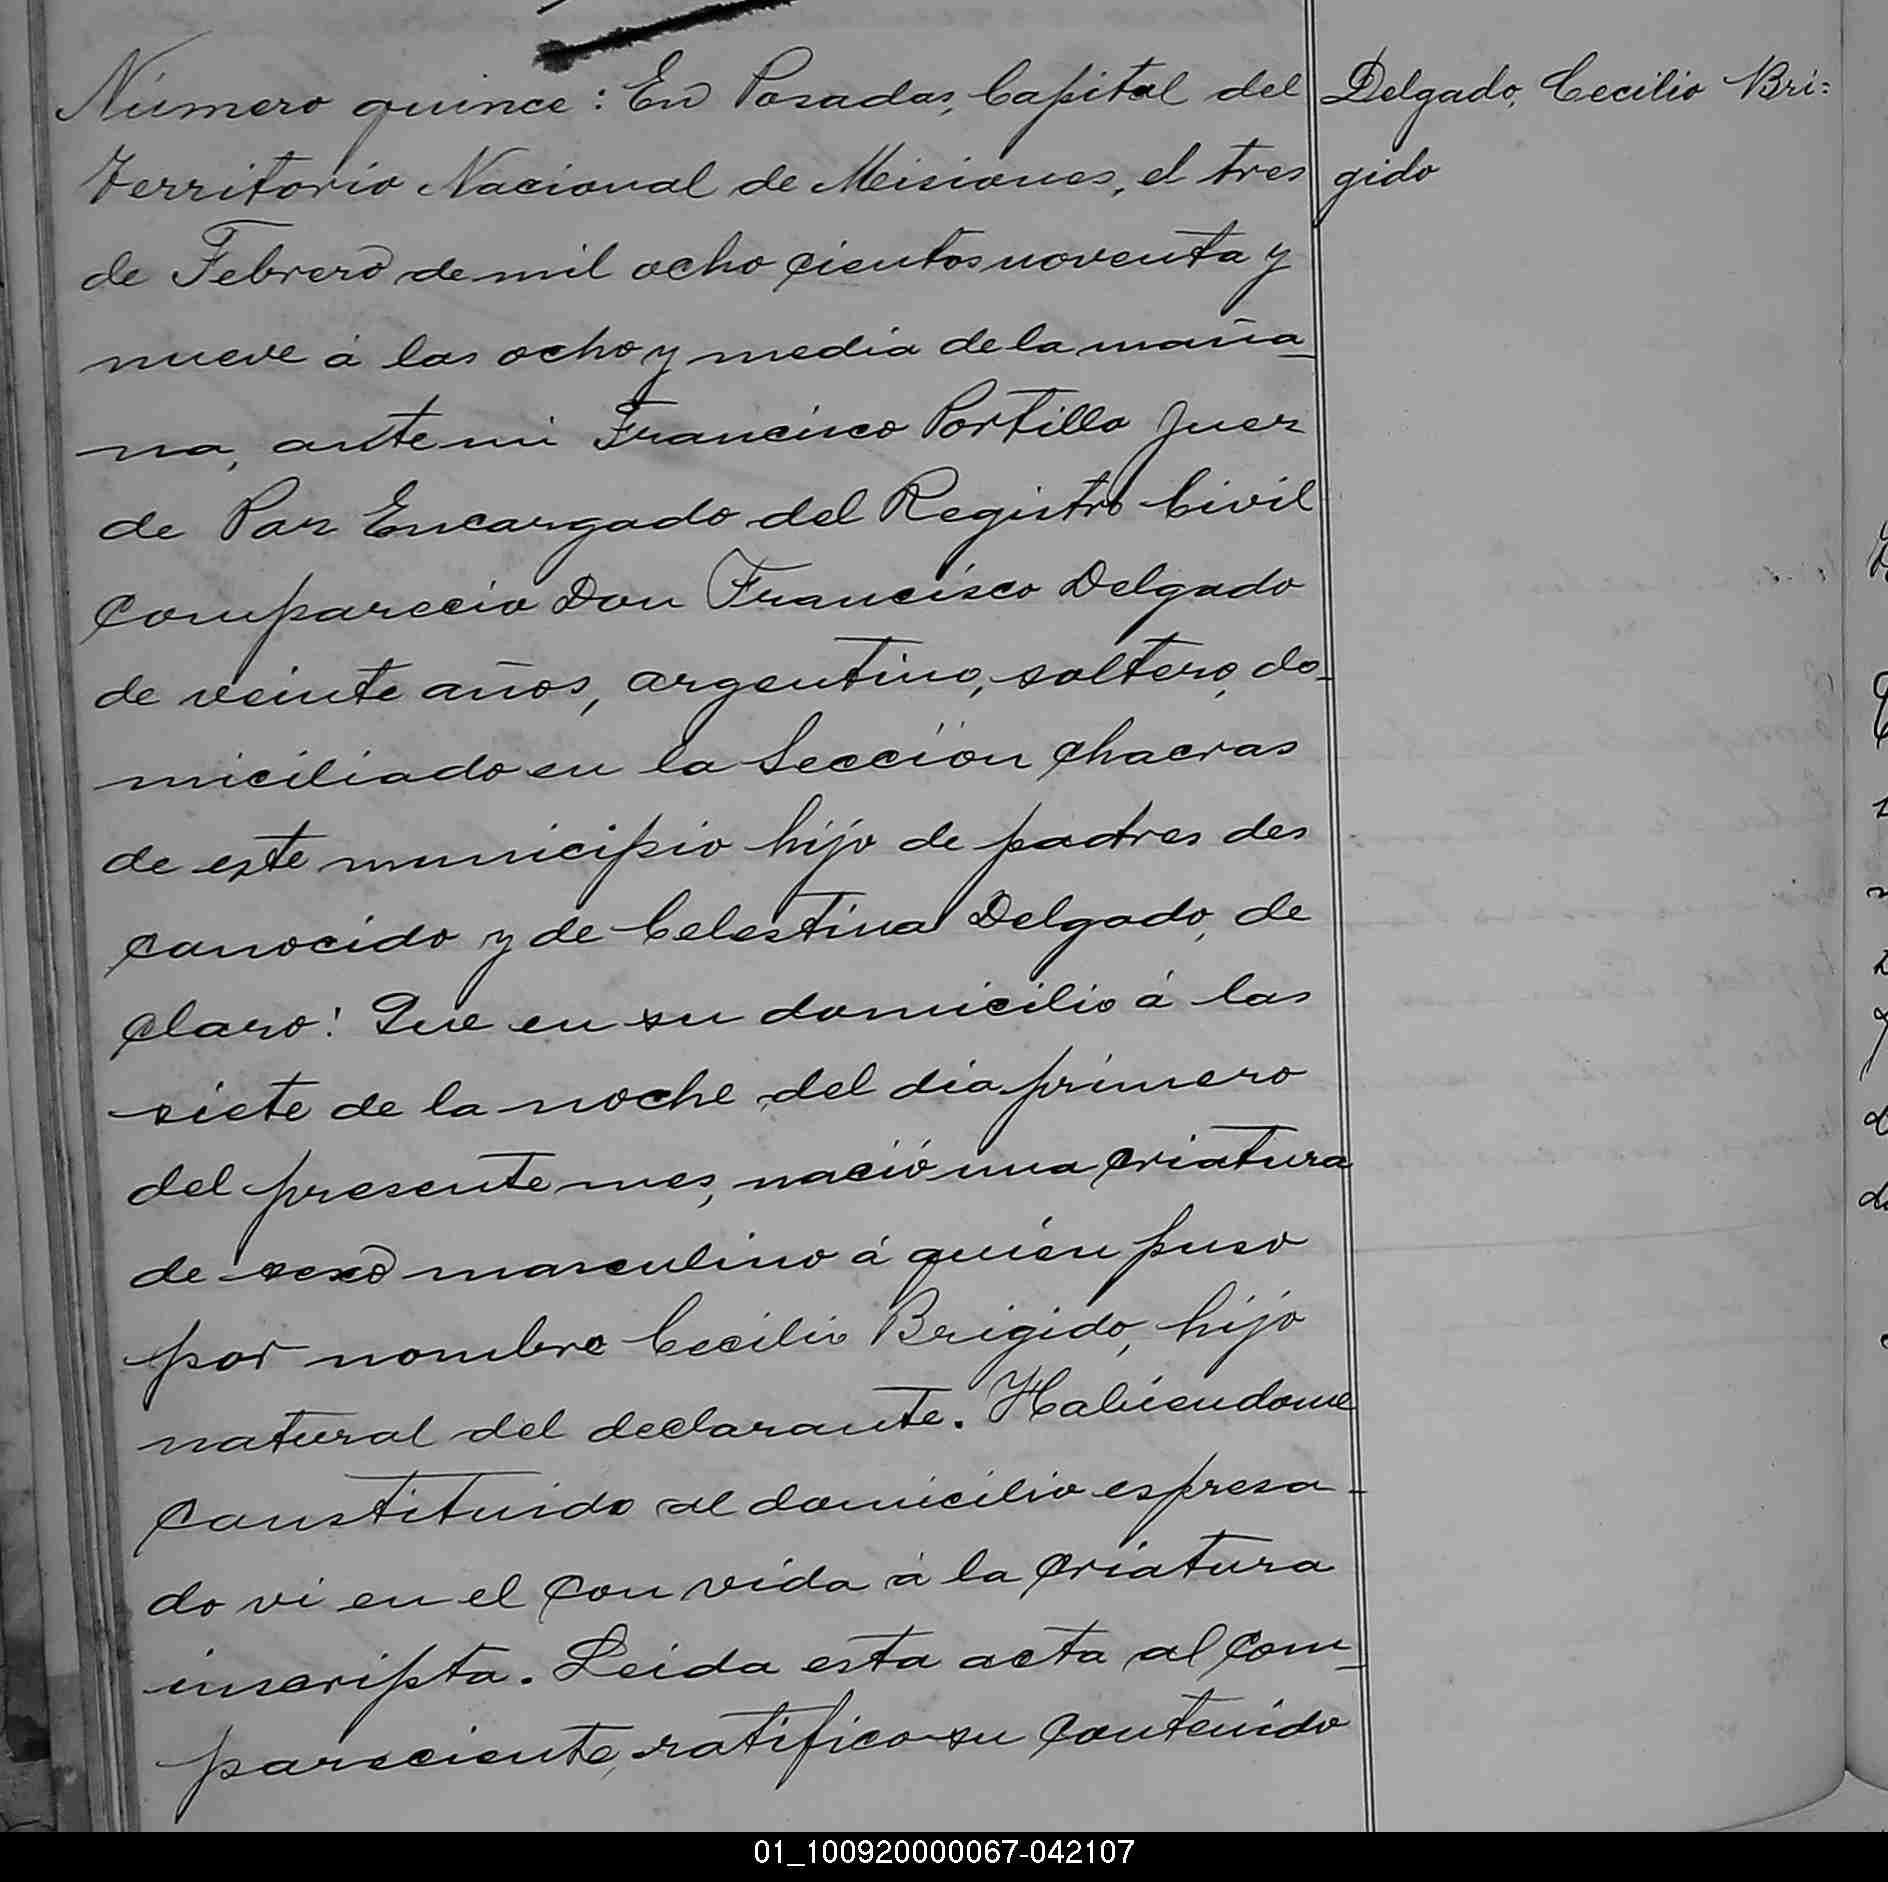 Número quince: En Posadas, Capital del
Territorio Nacional de Misiones, el tres
de Febrero de mil ocho cientos noventa y
nueve á las ocho y media de la maña-
na, ante mi Francisco Portillo Juez
de Paz Encargado del Registro Civil
Comparecio Don Francisco Delgado
de veinte años, argentino, soltero, do-
miciliado en la Sección Chacras
de este municipio hijo de padres des
conocido y de Celestina Delgado, de
claro: Que en su domicilio á las
siete de la noche del dia primero
del presente mes, nació una criatura
de sexo masculino á quién puso
por nombre Cecilio Brigido, hijo
natural del declarante. Habiendome
Constituido al domicilio espresa-
do vi en el con vida á la criatura
inscripta. Leida esta acta al com-
pareciente, ratifico su contenido
Delgado, Cecilio Bri=
gido
01_100920000067-042107